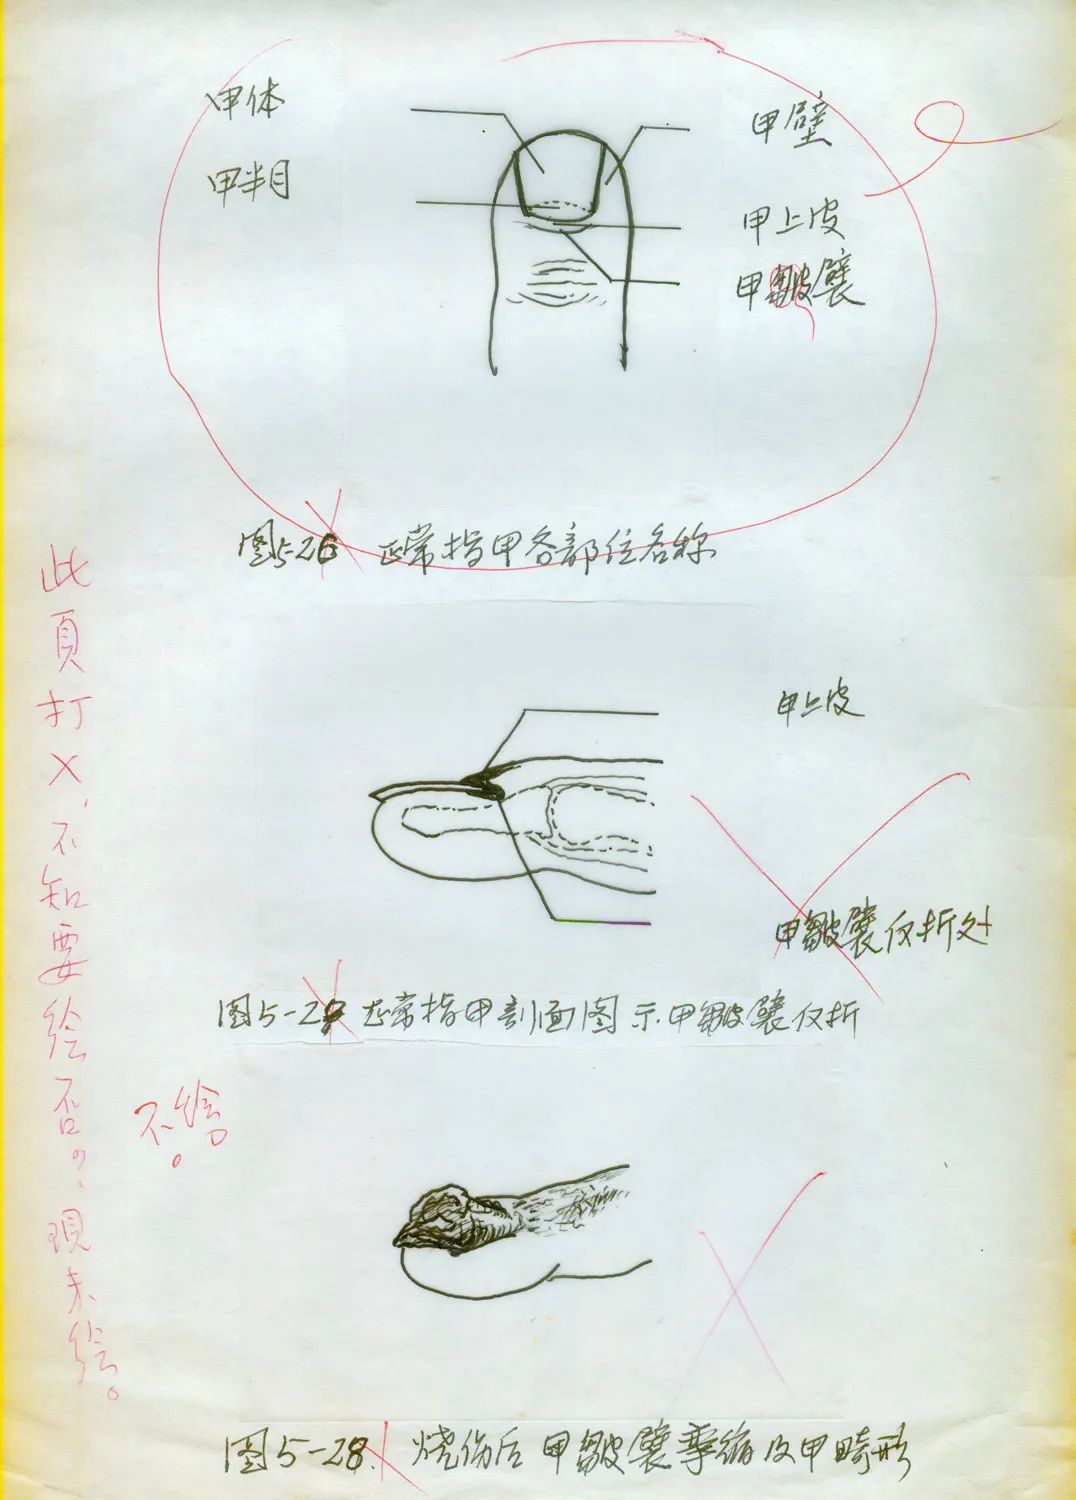 甲体
甲半月
甲壁
甲上皮
甲皱襞
图5-26 正常指甲各部位名称
甲上皮
甲皱襞反折处
图5-27 正常指甲剖面图 示甲皱襞反折
此頁打X，不知要绘否？現未绘。
不绘。
图5-28. 烧伤后甲皱襞挛缩及甲畸形